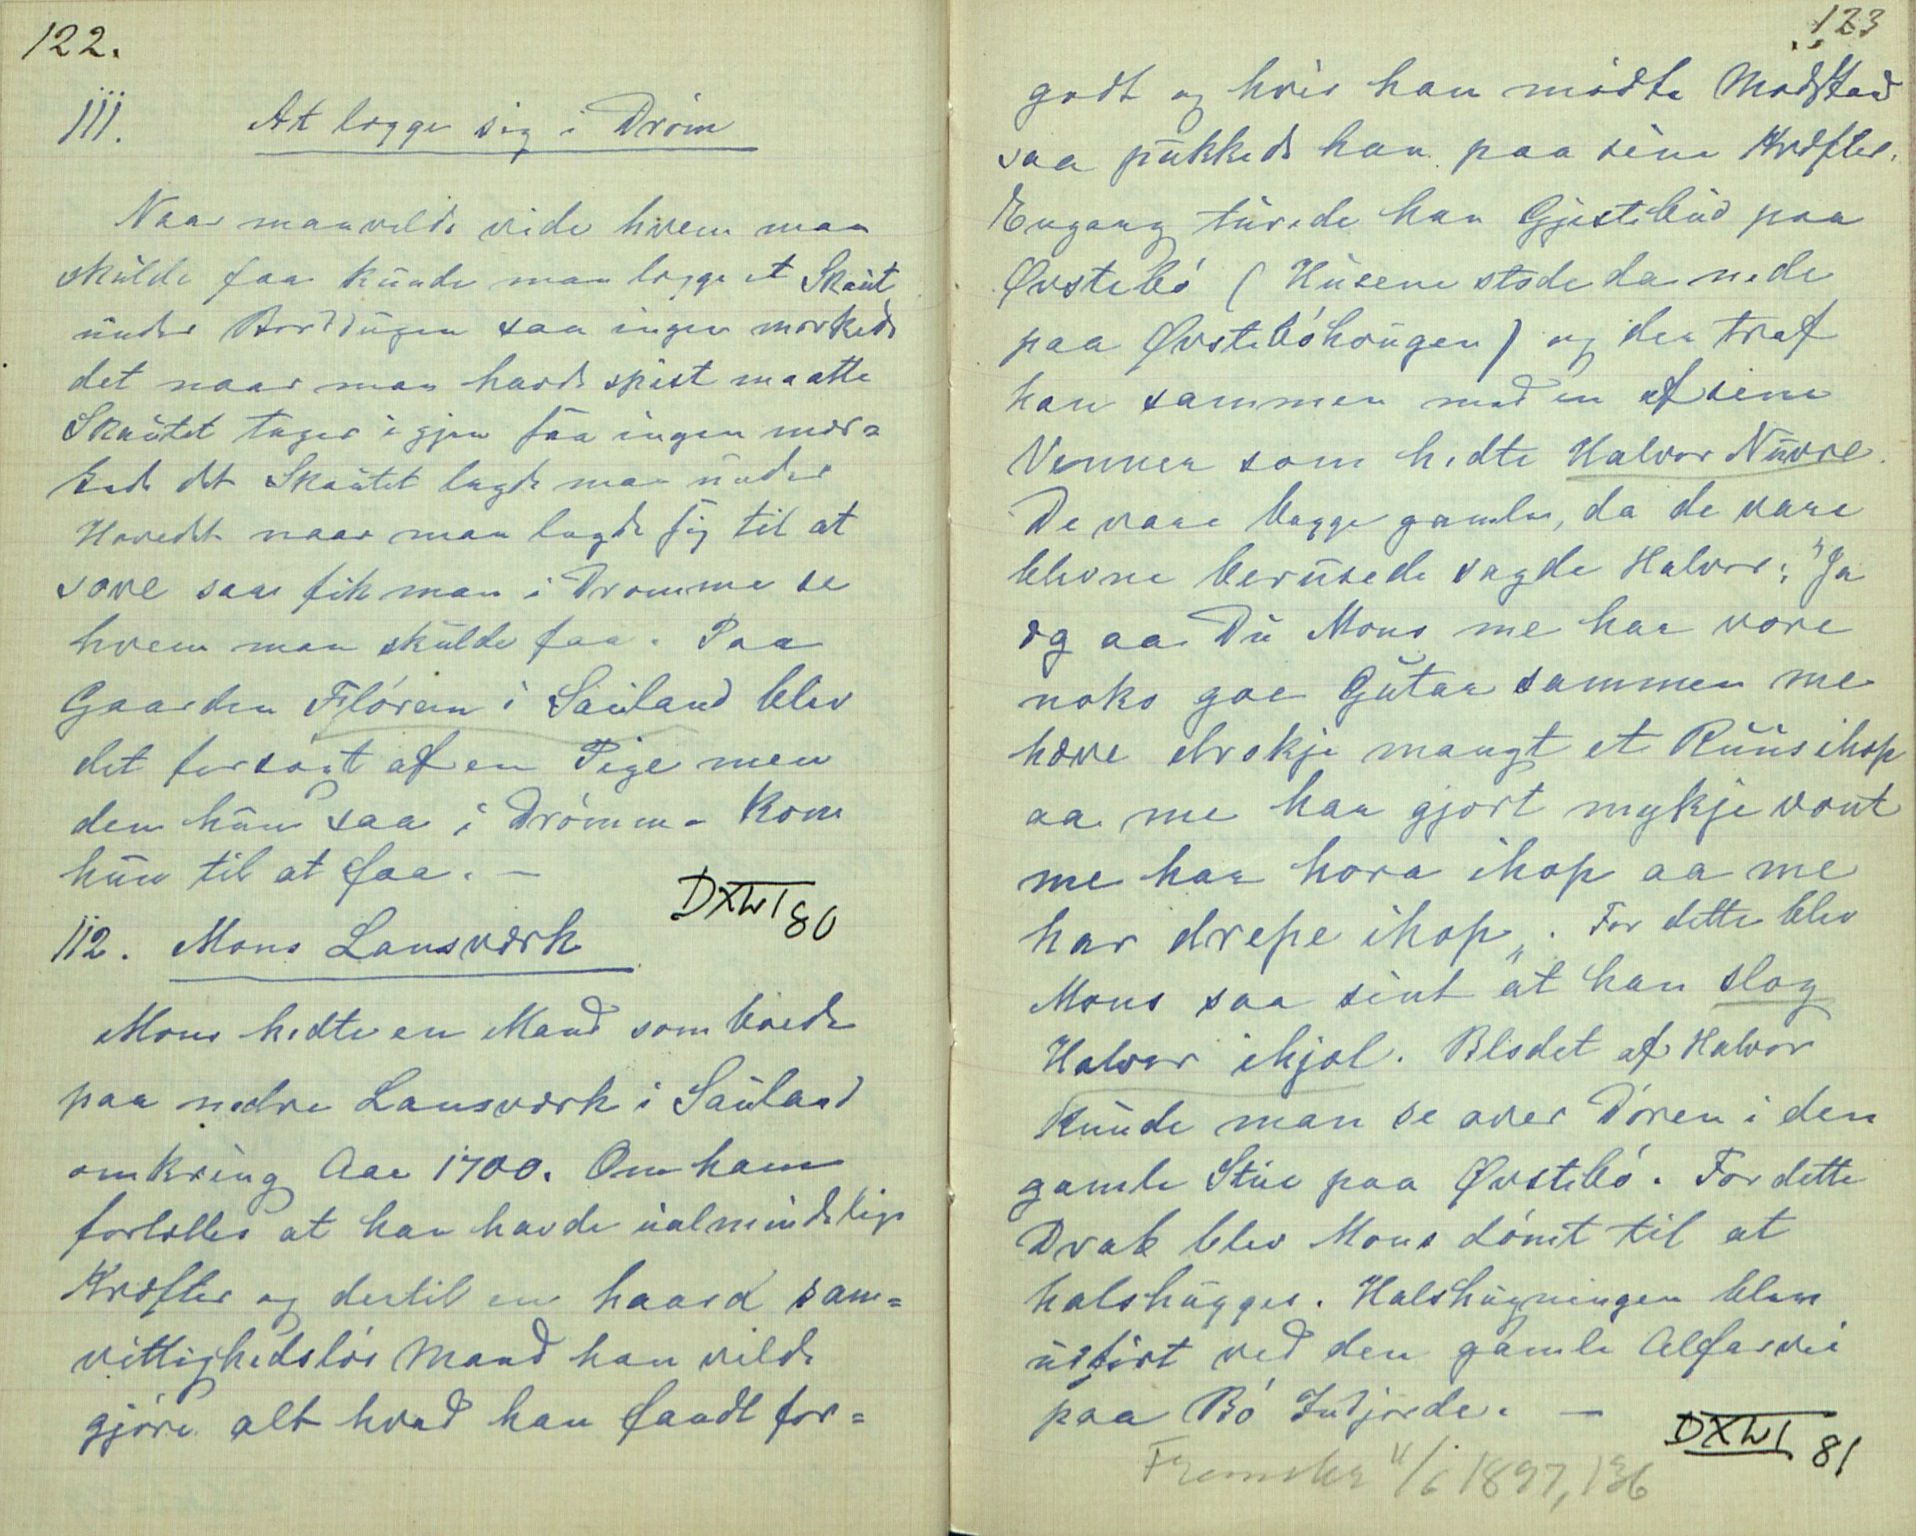 122.
111. At lægge sig i Drøm
Naar man vilde vide hvem man
skulde faa kunde man lægge et Skaut
under Borddugen saa ingen mærkede
det naar man havde spist maatte
Skautet tages igjen saa ingen mær=
kede det Skautet lagde man under
Hovedet naar man lagde sig til at
sove saa fik man i Drømme se
hvem man skulde faa. Paa
Gaarden Flórem i Sauland blev
det forsøgt af en Pige men
den hun saa i Drømme kom
hun til at faa. —
DXLVI 80
112. Mons Lansværk
Mons hedte en Mand som boede
paa nedre Lansværk i Sauland
omkring Aar 1700. Om ham
fortælles at han havde ualmindelige
Kræfter og dertil en haard sam=
vittighedsløs Mand han vilde
gjøre alt hvad han fandt for=
123
godt og hvis han mødte Modstand
saa pukkede han paa sine Kræfter.
Engang turede han Gjestebud paa
Øvstebó (Husene stode da nede
paa Øvstebóhougen) og der traf
han sammen med en af sine
Venner som hedte Halvor Nuvre.
De vare begge gamle, da de vare
blevne berusede sagde Halvor: "Ja
eg aa Du Mons me haa vore
noko goe Gutar sammen me
hæve drokje mangt et Ruus ihop
aa me haa gjort mykje vont
me haa hora ihop aa me
har drepe ihop". For dette blev
Mons saa sint at han slog
Halvor ihjel. Blodet af Halvor
kunde man se over Døren i den
gamle Stue paa Øvstebó. For dette
Drab blev Mons dømt til at
halshugges. Halshugningen blev
udført ved den gamle Alfarvei
paa Bó Indjorde. —
DXLVI 81
11/6 1897, 136